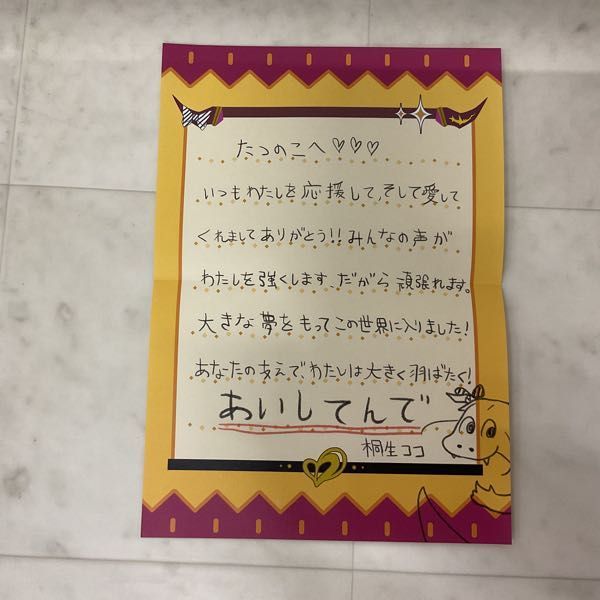 たつのこへ♡♡♡
いつもわたしを応援して、そして愛して
くれましてありがとう!!みんなの声が
わたしを強くします、だから頑張れます。
大きな夢をもってこの世界に入りました!
あなたの支えで、わたしは大きく羽ばたく!
あいしてんで
桐生ココ